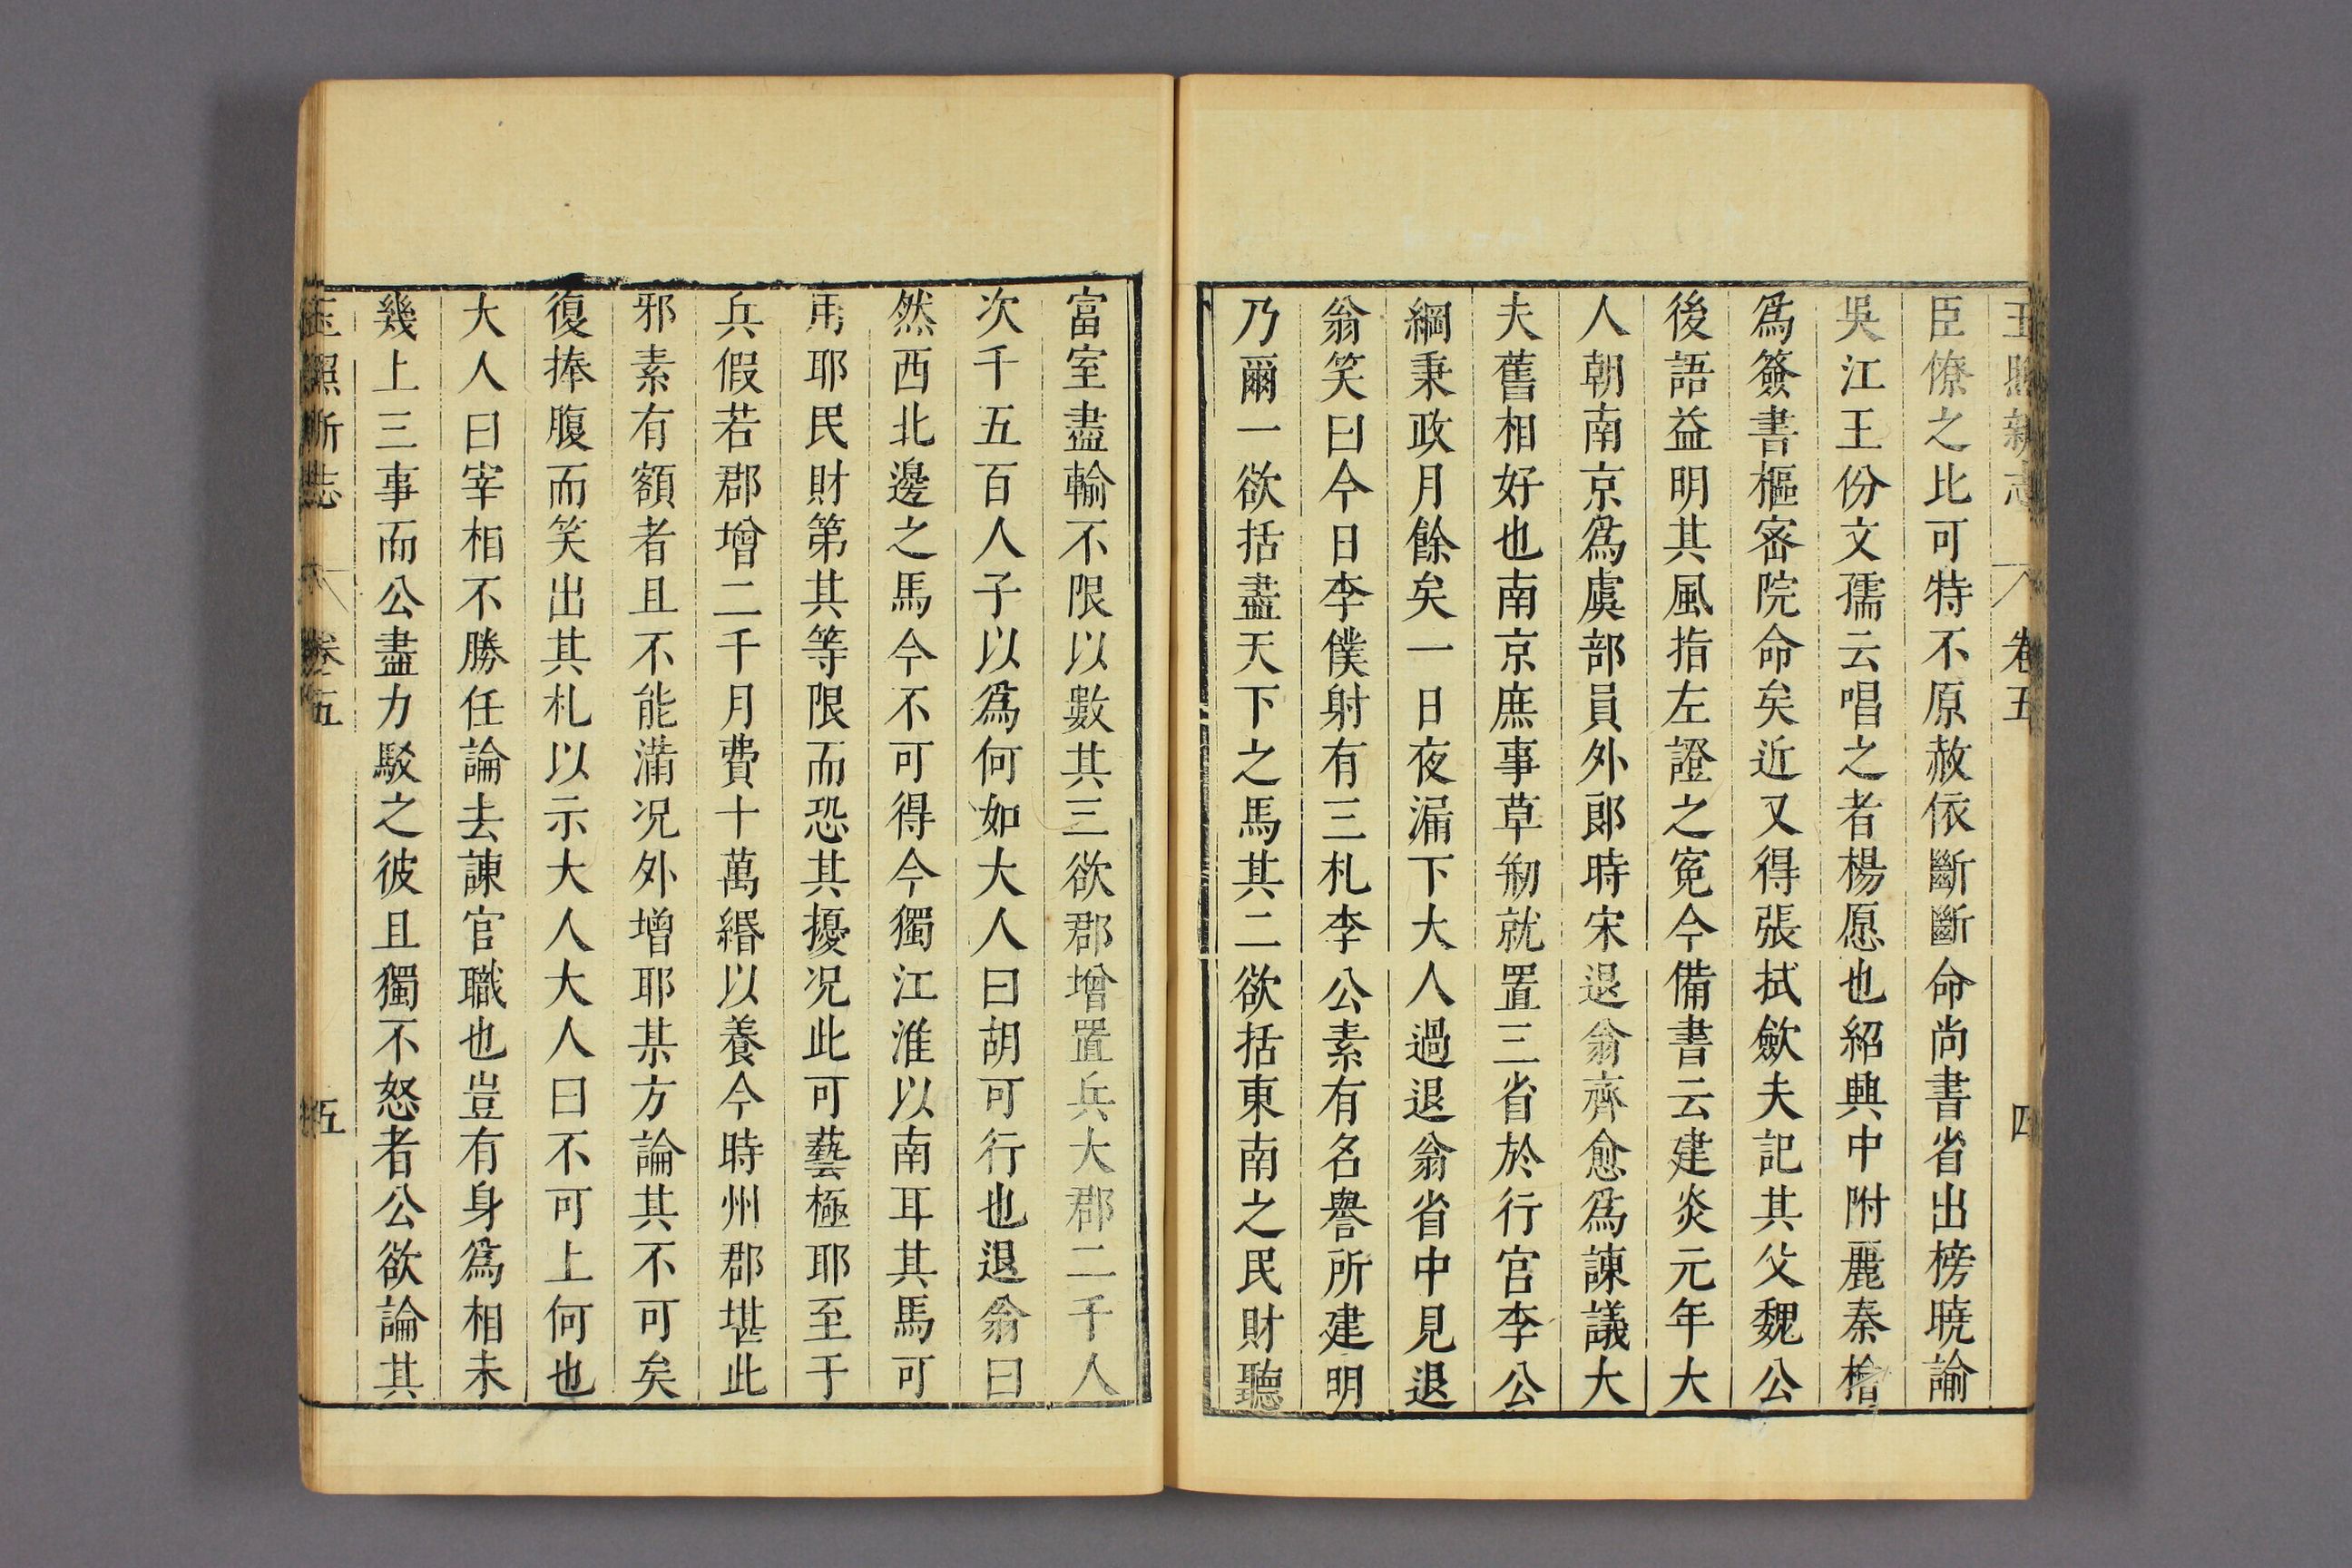 玉照新志 卷五 四
臣僚之比可特不原赦依斷斷命尚書省出榜曉諭
吳江王份文孺云唱之者楊愿也紹興中附麗秦檜
爲簽書樞密院命矣近又得張拭歛夫記其父魏公
後語益明其風指左證之寃今備書云建炎元年大
人朝南京爲虞部員外郎時宋退翁齊愈爲諫議大
夫舊相好也南京庶事草剏就置三省於行宫李公
綱秉政月餘矣一日夜漏下大人過退翁省中見退
翁笑曰今日李僕射有三札李公素有名譽所建明
乃爾一欲括盡天下之馬其二欲括東南之民財聽
富室盡輸不限以數其三欲郡增置兵大郡二千人
次千五百人子以爲何如大人曰胡可行也退翁曰
然西北邊之馬今不可得今獨江淮以南耳其馬可
用耶民財第其等限而恐其擾况此可藝極耶至于
兵假若郡增二千月費十萬緡以養今時州郡堪此
邪素有額者且不能滿况外增耶某方論其不可矣
復捧腹而笑出其札以示大人大人曰不可上何也
大人曰宰相不勝任論去諫官職也豈有身爲相未
幾上三事而公盡力駁之彼且獨不怒者公欲論其
玉照新誌 卷五 五